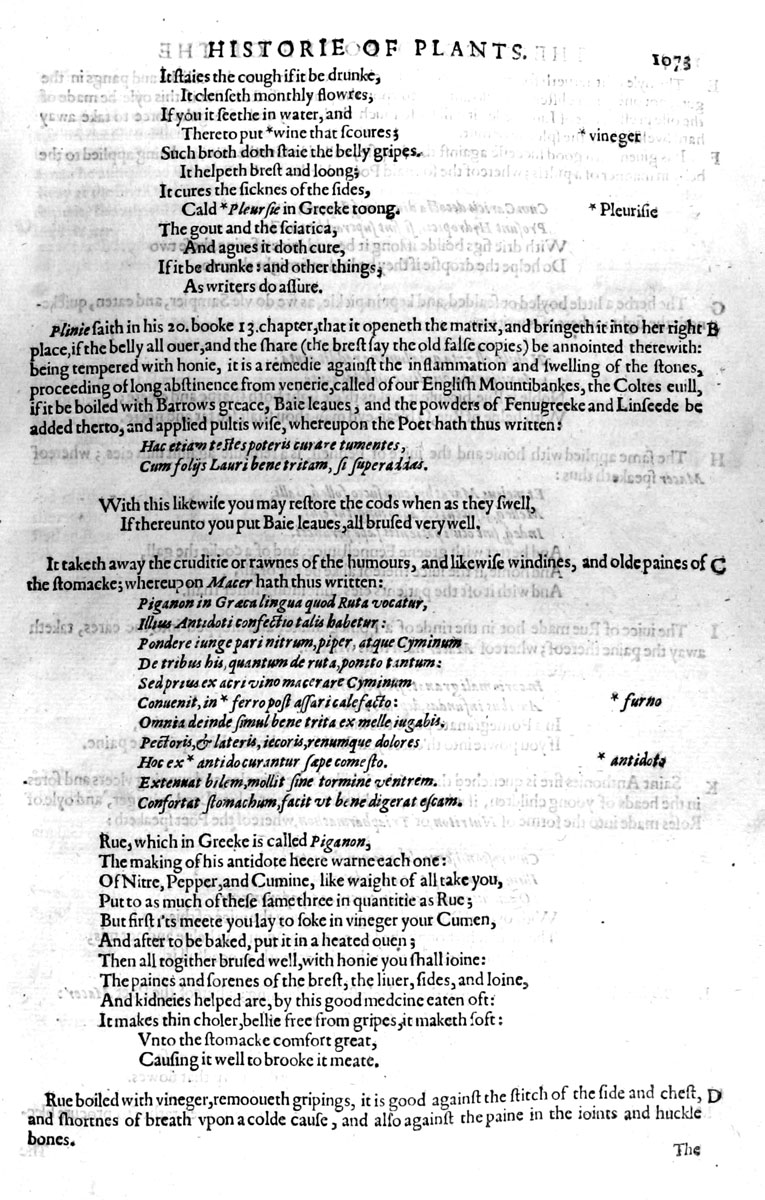 HISTORIE OF PLANTS. 1073
It ſtaies the cough if it be drunke,
It clenſeth monthly flowres,
If you it ſeethe in water, and
Thereto put *wine that ſcoures; * vineger
Such broth doth ſtaie the belly gripes.
It helpeth breſt and loong;
It cures the ſicknes of the ſides,
Cald *Pleurſie in Greeke toong. * Pleuriſie
The gout and the ſciatica,
And agues it doth cure,
If it be drunke: and other things,
As writers do aſſure.
Plinie ſaith in his 20. booke 13. chapter, that it openeth the matrix, and bringeth it into her right B
place, if the belly all ouer, and the ſhare (the breſt ſay the old falſe copies) be annointed therewith:
being tempered with honie, it is a remedie againſt the inflammation and ſwelling of the ſtones,
proceeding of long abſtinence from venerie, called of our Engliſh Mountibankes, the Coltes euill,
if it be boiled with Barrows greace, Baie leaues, and the powders of Fenugreeke and Linſeede be
added therto, and applied pultis wiſe, whereupon the Poet hath thus written:
Hac etiam teſtes poteris curare tumentes,
Cum folijs Lauri bene tritam, ſi ſuperaddas.
With this likewiſe you may reſtore the cods when as they ſwell,
If thereunto you put Baie leaues, all bruſed very well.
It taketh away the cruditie or rawnes of the humours, and likewiſe windines, and olde paines of C
the ſtomacke; whereupon Macer hath thus written:
Piganon in Græca lingua quod Ruta vocatur,
Illius Antidoti confectio talis habetur:
Pondere iunge pari nitrum, piper, atque Cyminum
De tribus his, quantum de ruta, ponito tantum:
Sed prius ex acri vino macerare Cyminum
Conuenit, in * ferro poſt aſſari calefacto: * furno
Omnia deinde ſimul bene trita ex melle iugabis,
Pectoris, & lateris, iecoris, renumque dolores
Hoc ex * antido curantur ſæpe comeſto. * antidoto
Extenuat bilem, mollit ſine tormine ventrem.
Confortat ſtomachum, facit vt bene digerat eſcam.
Rue, which in Greeke is called Piganon,
The making of his antidote heere warne each one:
Of Nitre, Pepper, and Cumine, like waight of all take you,
Put to as much of theſe ſame three in quantitie as Rue;
But firſt i'ts meete you lay to ſoke in vineger your Cumen,
And after to be baked, put it in a heated ouen;
Then all togither bruſed well, with honie you ſhall ioine:
The paines and ſorenes of the breſt, the liuer, ſides, and loine,
And kidneies helped are, by this good medcine eaten oft:
It makes thin choler, bellie free from gripes, it maketh ſoft:
Vnto the ſtomacke comfort great,
Cauſing it well to brooke it meate.
Rue boiled with vineger, remooueth gripings, it is good againſt the ſtitch of the ſide and cheſt, D
and ſhortnes of breath vpon a colde cauſe, and alſo againſt the paine in the ioints and huckle
bones.
The